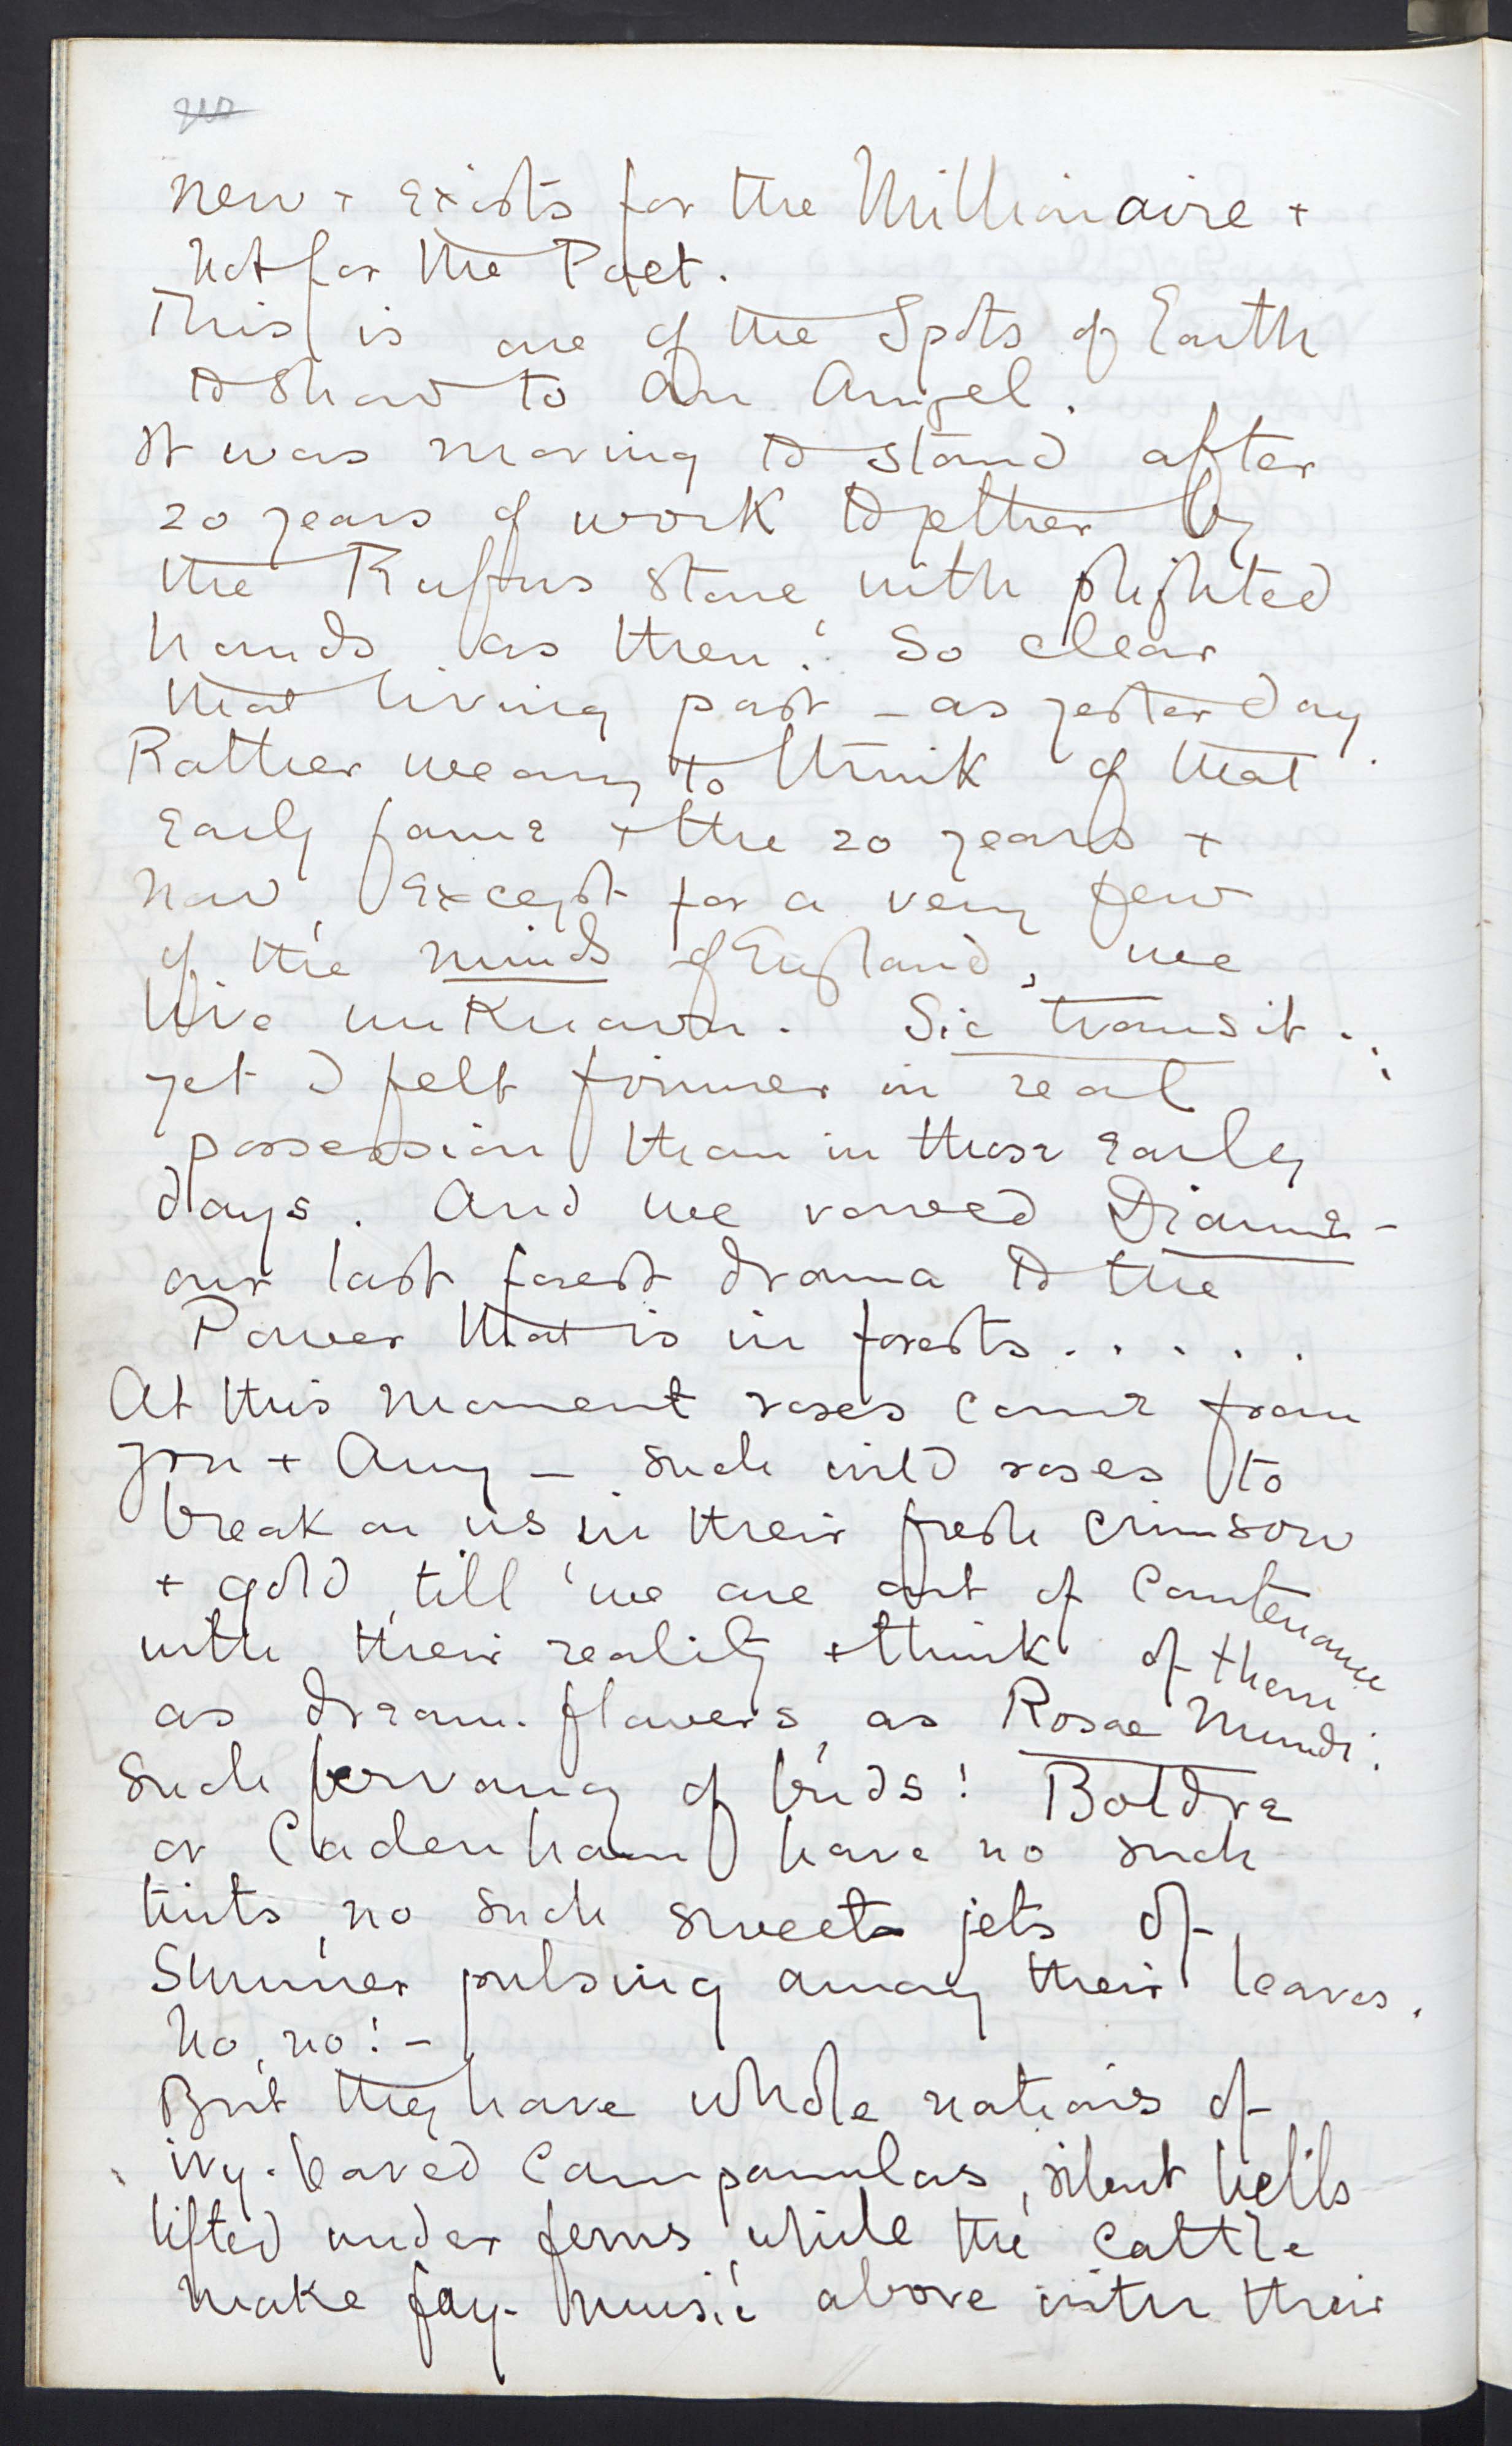 new + exists for the Millionaire +
not for the Poet.
This is one of the Spots of Earth
to show to an Angel.
It was moving to stand after
20 years of work together by
the Rufus Stone with plighted
hands, as then! So clear
that living past – as yesterday.
Rather weary to think of that
early fame + the 20 years +
now, except for a very few
of the minds of England, we
live unknown. Sic transit..
yet I felt firmer in real
possession than in those early
days. And we vowed Diane –
our last forest drama to the
Power that is in forests.....
At this moment roses come from
you + Amy – such wild roses to
break on us in their fresh crimson
+ gold, till we are out of Countenance
with their reality + think of them
as dream-flowers, as Rosae Mundi.
Such fervancy of buds! Boldre
or Cadenham have no such
tints, no such sweet jets of
Summer pulsing among their leaves.
No, no! –
But they have whole nations of
ivy-leaved Campanulas, silent bells
lifted under ferns, while the cattle
make fay-music above with their